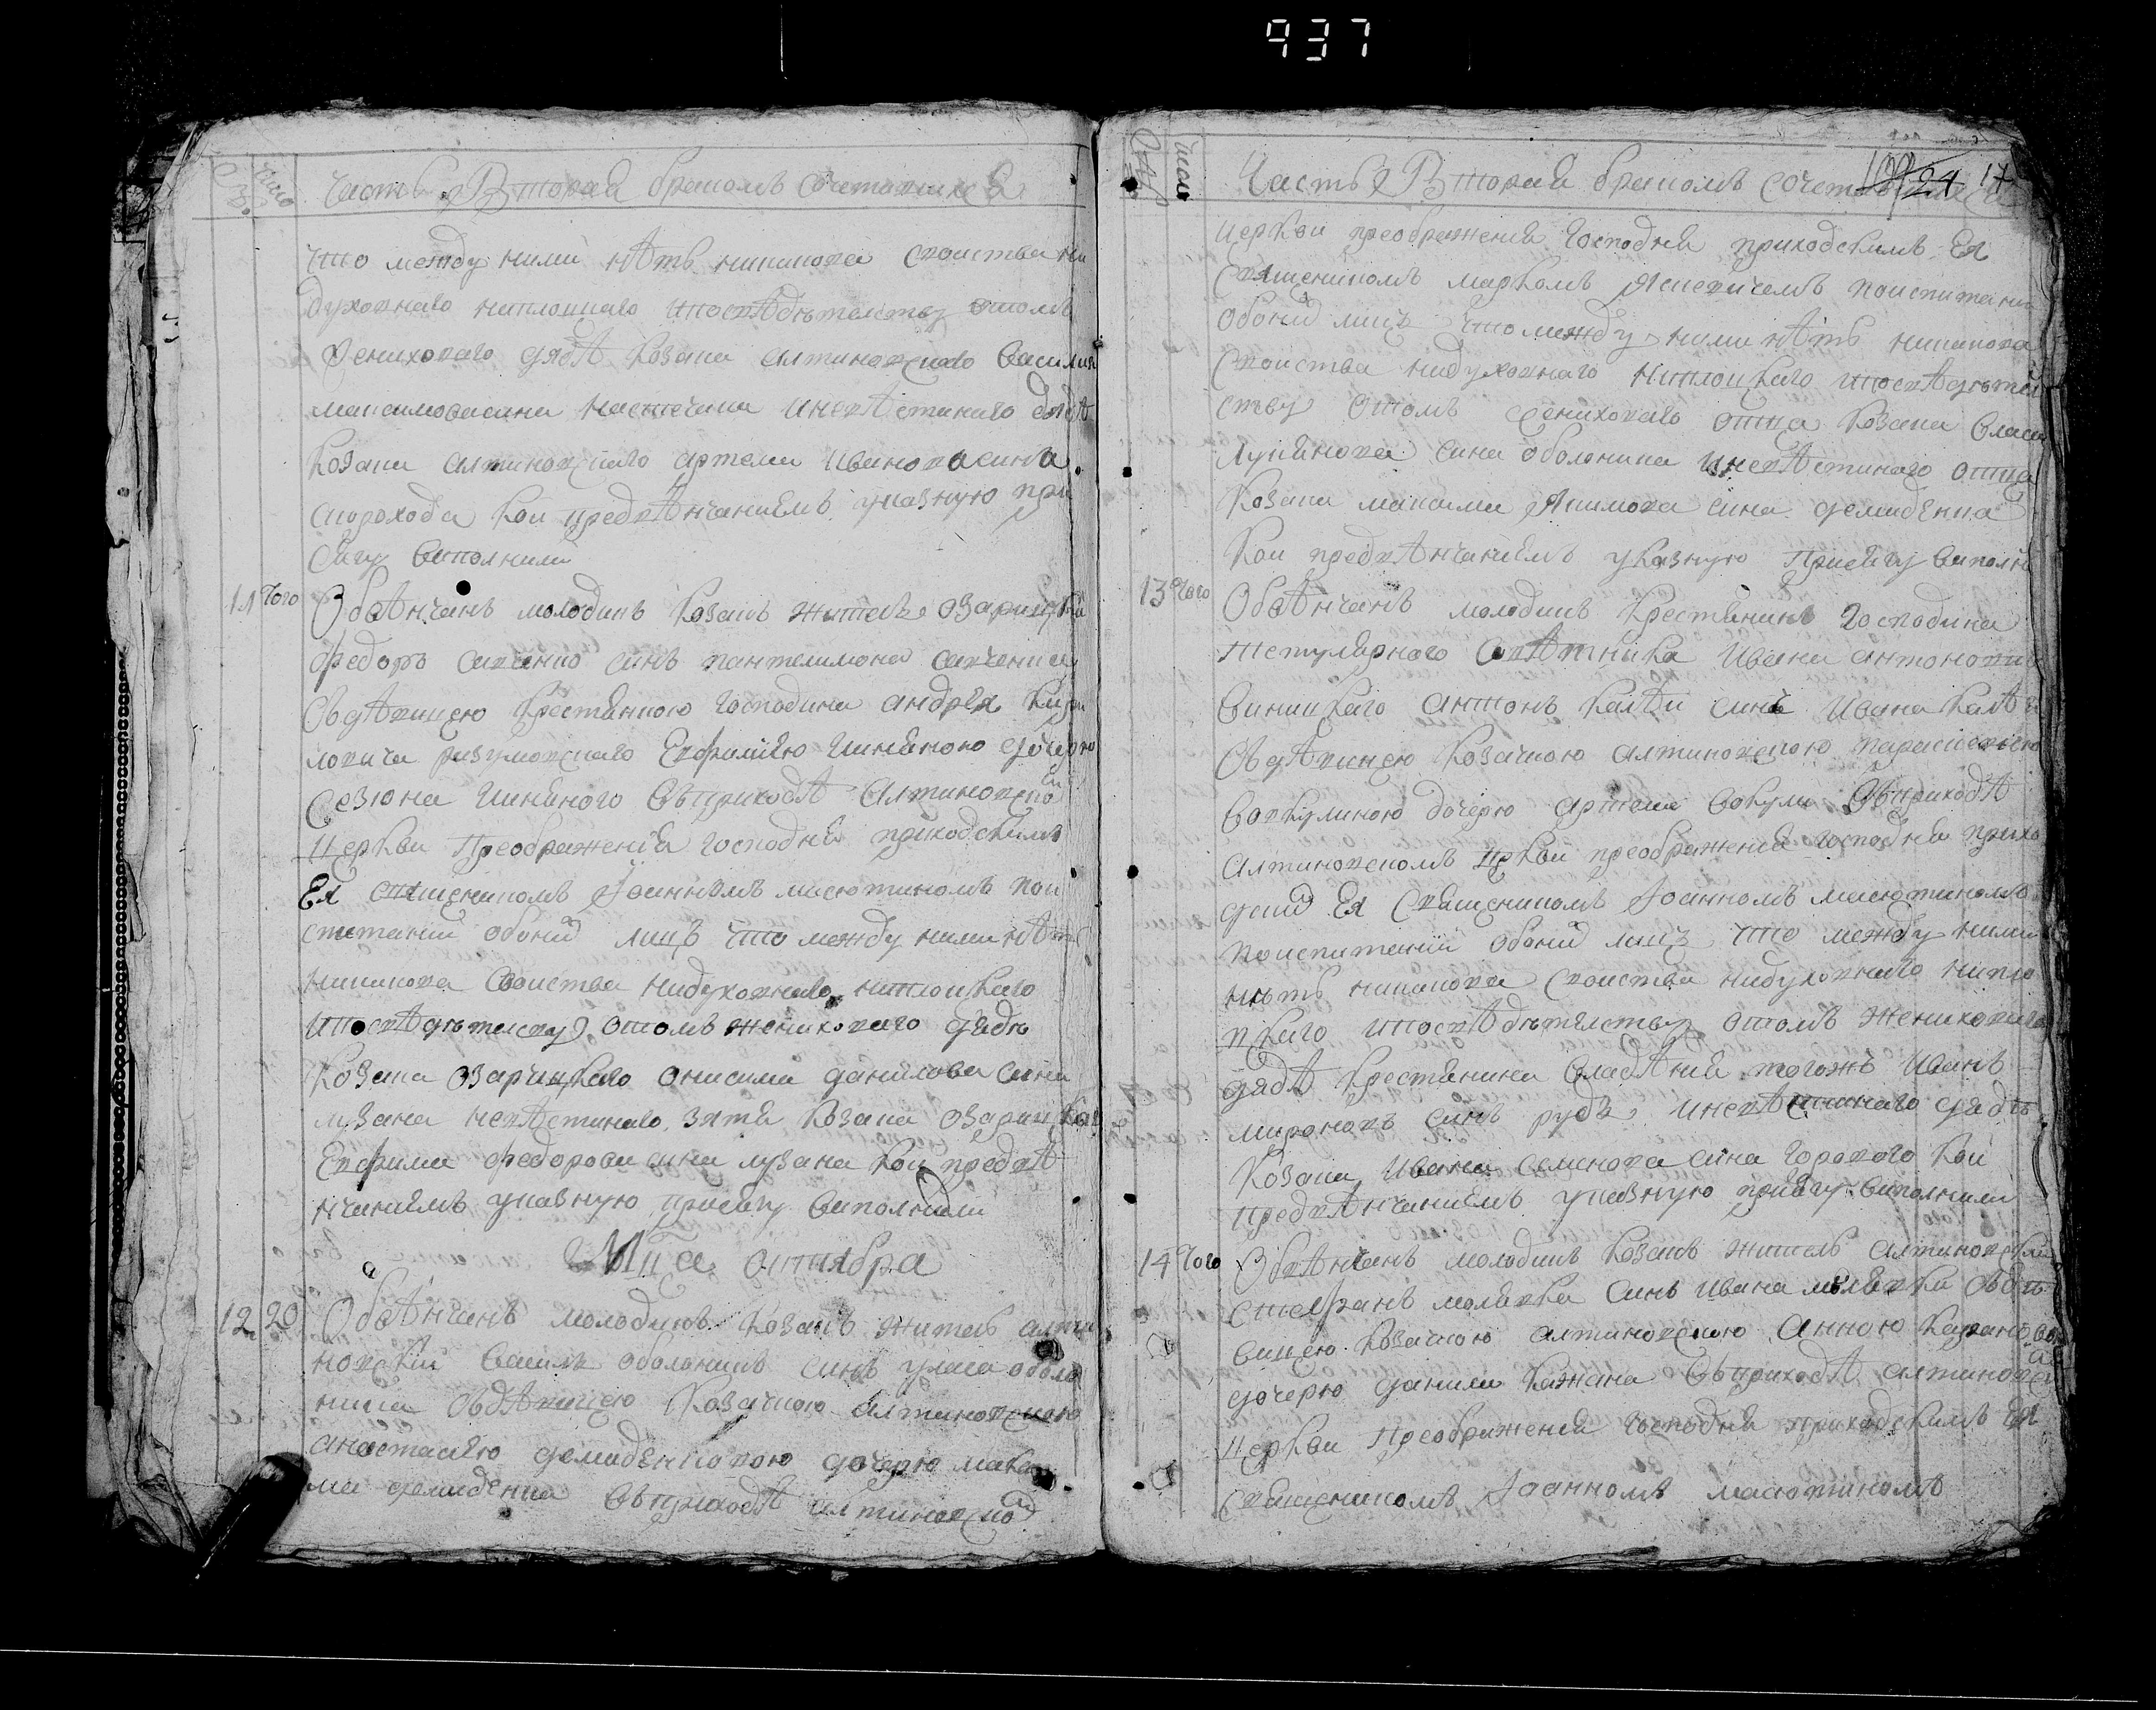 937
Число
Часть Вторая бракомъ сочетавшихся
что между ними нѣтъ никакова своиства ни
духовнаго ниплоцкаго ипосвѣдѣтелству отомъ
женихова дядѣ козака алтиновскаго василия
максимова сина иневѣстинаго дядѣ
козака алтиновскаго артема иванова сина
скорохода кои предвѣнчаниемъ указную при
сягу виполнили
11 того Обвѣнчанъ молодикъ козакъ житель озарицки
федоръ савченко синъ пантелимона савченка
Сьдѣвицею крестянкою господина андрея кири
ловича разумовскаго Евфимиею дочерю
Въприходѣ алтиновской
церкви Преображения господня приходскимъ
Ея священикомъ Иоанномъ масютиномъ поис
питании обоихъ лицъ что между ними нѣтъ
никакова своиства нидуховнаго ниплоцкаго
ипосвѣдѣтелству отомъ жениховаго дядѣ
козака озарицкаго онисима данилова сина
лузана невѣстинаго зятя козака озарицкаго
Евфима федорова сина лузана кои предвѣ
нчаниемъ указную присягу виполнили
Мца октября
12 20 Обвѣнчанъ молодикъ козакъ житель алти
новский василь оболоникъ синъ уласа оболо
ника Сьдѣвицею козачкою алтиновскою
анастасиею демиденковою дочерю макси
ма демиденка Въприходѣ алтиновской
24 17
число
Часть Вторая бракомъ сочетавшихся
церкви преображения господня приходскимъ Ея
священикомъ маркомъ поиспитании
обоихъ лицъ что между ними нѣтъ никакова
своиства нидуховнаго ниплоцкаго ипосвѣдѣтел
ству отомъ жениховаго отца козака власа
лукянова сина оболоника иневѣстинаго отца
козака максима якимова сина демиденка
кои предвѣнчаниемъ указную присягу виполн
13 того Обвѣнчанъ молодикъ крестянинъ господина
титулярного совѣтника ивана антонови
виницкаго антонъ калѣй синъ ивана калѣя
Сьдѣвицею козачкою алтиновскою параскевиею
вакулиною дочерю артема вакули Въприходѣ
алтиновскомъ цркви преображения господня прихо
дский Ея священикомъ Иоанномъ масютиномъ
поиспитании обоихъ лицъ что между ними
нѣтъ никакова своиства нидуховнаго нипло
цкаго ипосвѣдѣтелству отомъ жениховаго
дядѣ крестянина владѣния тогожъ иванъ
мироновъ синъ рудъ иневѣстинаго дядѣ
козака ивана семенова сина горового кои
предвѣнчаниемъ указную присягу виполнили
14 того Обвѣнчанъ молодикъ козакъ житель алтиновский
стефанъ молявка синъ ивана молявки Сьдѣ
вицею козачкою алтиновскою анною кажановою
дочерю данила кажана Въприходѣ алтиновской
церкви Преображения господня приходскимъ Ея
священикомъ Иоанномъ масютиномъ